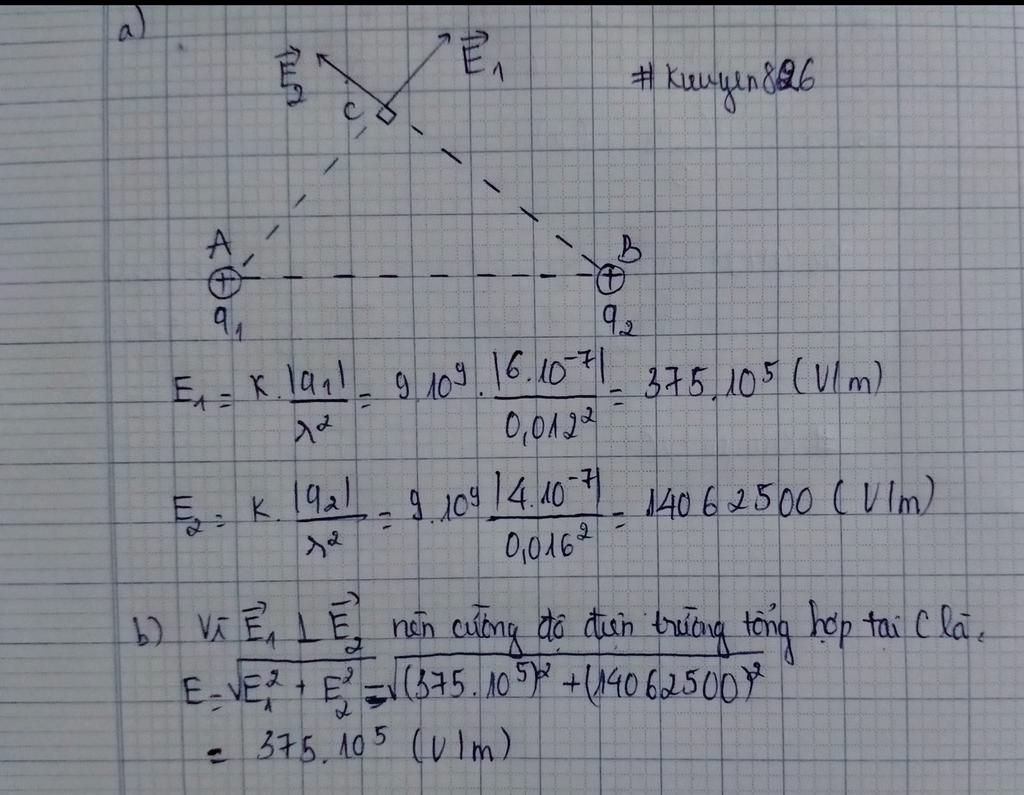 a)
E⃗₂ C E⃗₁ #Kuuyen826
A B
q₁ q₂
E₁ = K. |q₁|/r² = 9.10⁹. |6.10⁻⁷|/0,012² = 375.10⁵ (V/m)
E₂ = K. |q₂|/r² = 9.10⁹ |4.10⁻⁷|/0,016² = 14062500 (V/m)
b) Vì E⃗₁ ⊥ E⃗₂ nên cường độ điện trường tổng hợp tại C là:
E = √(E₁² + E₂²) = √((375.10⁵)² + (14062500)²)
= 375.10⁵ (V/m)